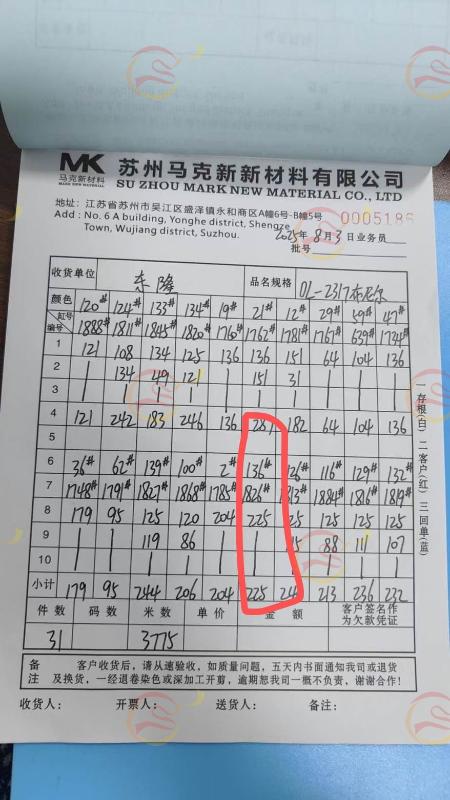 MK 苏州马克新新材料有限公司
马克新材料
MARK NEW MATERIAL
SU ZHOU MARK NEW MATERIAL CO., LTD
地址：江苏省苏州市吴江区盛泽镇永和商区A幢6号-B幢5号
Add : No. 6 A building, Yonghe district, Shengze
Town, Wujiang district, Suzhou.
0005186
2025年8月3日 业务员
批号
收货单位 东隆 品名规格 OL-2317布尼尔
颜色 120# 124# 133# 134# 19# 21# 12# 29# 49# 47#
缸号 编号 1888# 1811# 1845# 1820# 1760# 1762# 1781# 1767# 639# 1734#
1 121 108 134 125 136 136 151 64 104 136
2 | 134 49 121 | 151 31 | | |
3
4 121 242 183 246 136 287 182 64 104 136
5
6 36# 62# 139# 100# 2# 136# 126# 116# 129# 132#
7 1748# 1791# 1827# 1868# 1785# 1826# 1884# 1816# 1819#
8 179 95 125 120 204 225 125 125 125
9 | | 119 86 | | 88 111 107
10
小计 179 95 244 206 204 225 213 236 232
件数 码数 米数 单价 金额 客户签名作
为欠款凭证
31 3775
备注 客户收货后，请从速验收，如质量问题，五天内书面通知我司或退货
及换货，一经退卷染色或深加工开剪，逾期恕我司一概不负责，谢谢合作！
收货人： 开票人： 送货人： 备注：
一存根(白) 二客户(红) 三回单(蓝)